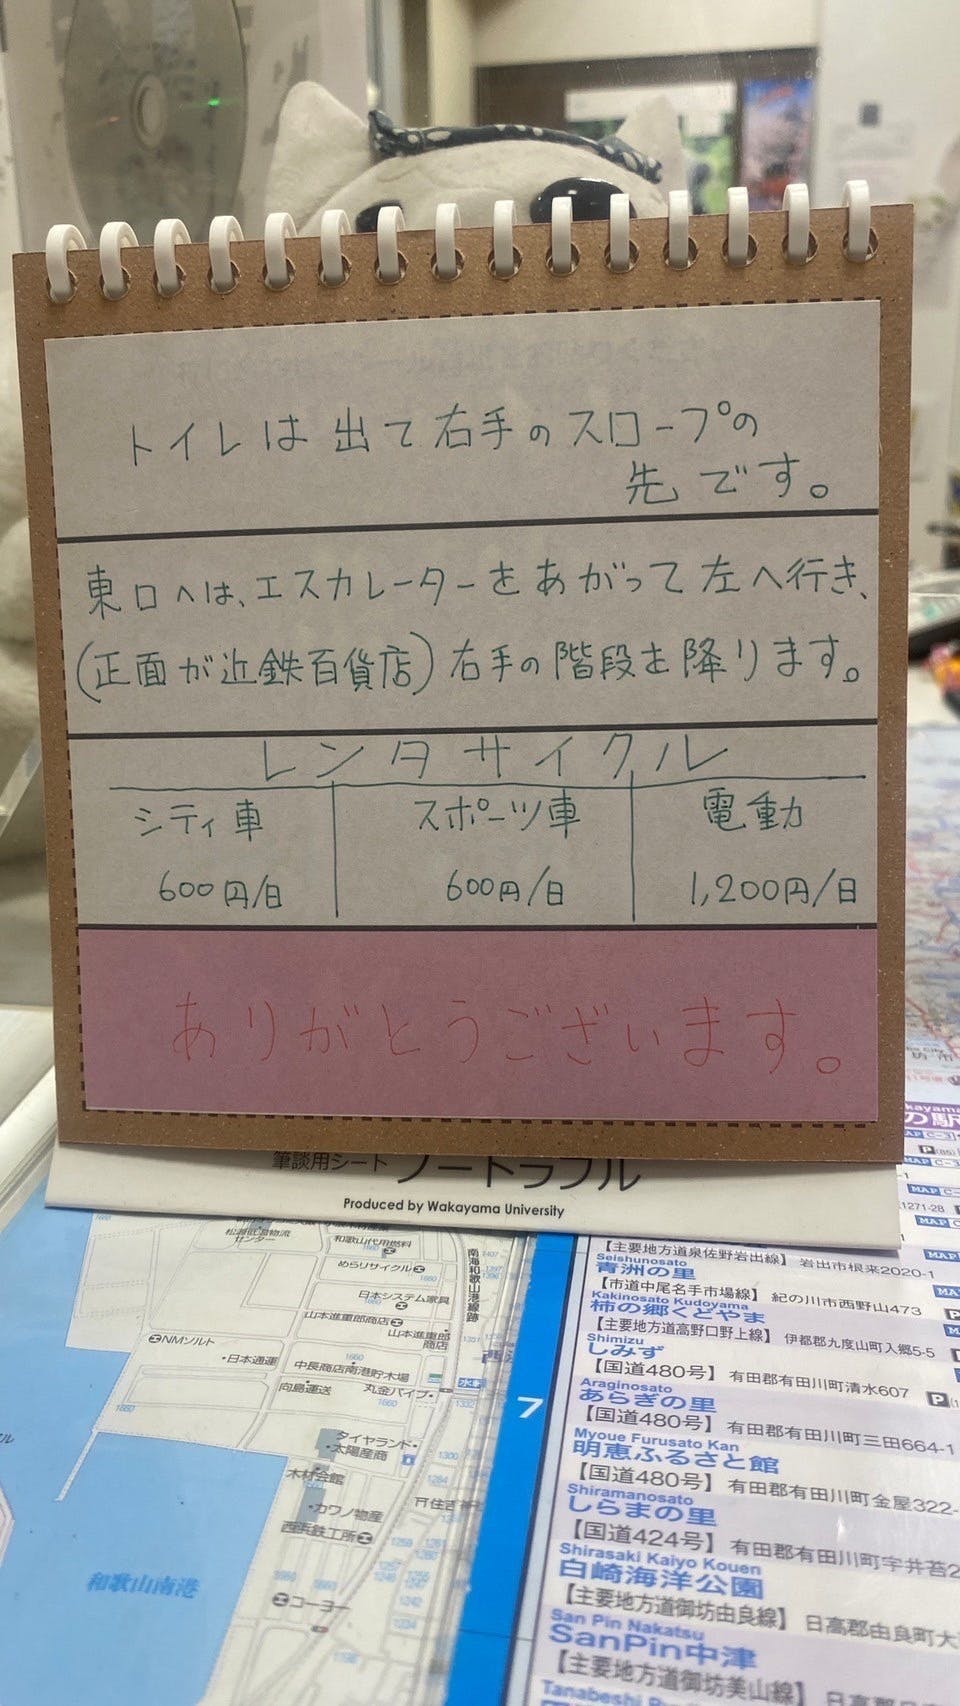 トイレは出て右手のスロープの
先です。
東口へは、エスカレーターをあがって左へ行き、
(正面が近鉄百貨店)右手の階段を降ります。
レンタサイクル
シティ車 スポーツ車 電動
600円/日 600円/日 1,200円/日
ありがとうございます。
筆談用シート ノートラブル
Produced by Wakayama University
和歌山代用燃料
めらリサイクル
日本システム家具
山本進重郎商店
山本進重郎
商店
南海和歌山港線跡
NMソルト
・日本通運
中長商店南港貯木場
向島運送
丸金パイプ
タイヤランド・
・太陽産商
木材会館
・カワノ物産
西浜鉄工所
コーヨー
和歌山南港
7
の駅
【主要地方道泉佐野岩出線】 岩出市根来2020-1
Seishunosato
青洲の里
【市道中尾名手市場線】 紀の川市西野山473
Kakinosato Kudoyama
柿の郷くどやま
【主要地方道高野口野上線】 伊都郡九度山町入郷5-5
Shimizu
しみず
【国道480号】 有田郡有田川町清水607
Araginosato
あらぎの里
【国道480号】 有田郡有田川町三田664-1
Myoue Furusato Kan
明恵ふるさと館
【国道480号】 有田郡有田川町金屋322-
Shiramanosato
しらまの里
【国道424号】 有田郡有田川町宇井苔2
Shirasaki Kaiyo Kouen
白崎海洋公園
【主要地方道御坊由良線】 日高郡由良町大
San Pin Nakatsu
SanPin中津
【主要地方道御坊美山線】 日高